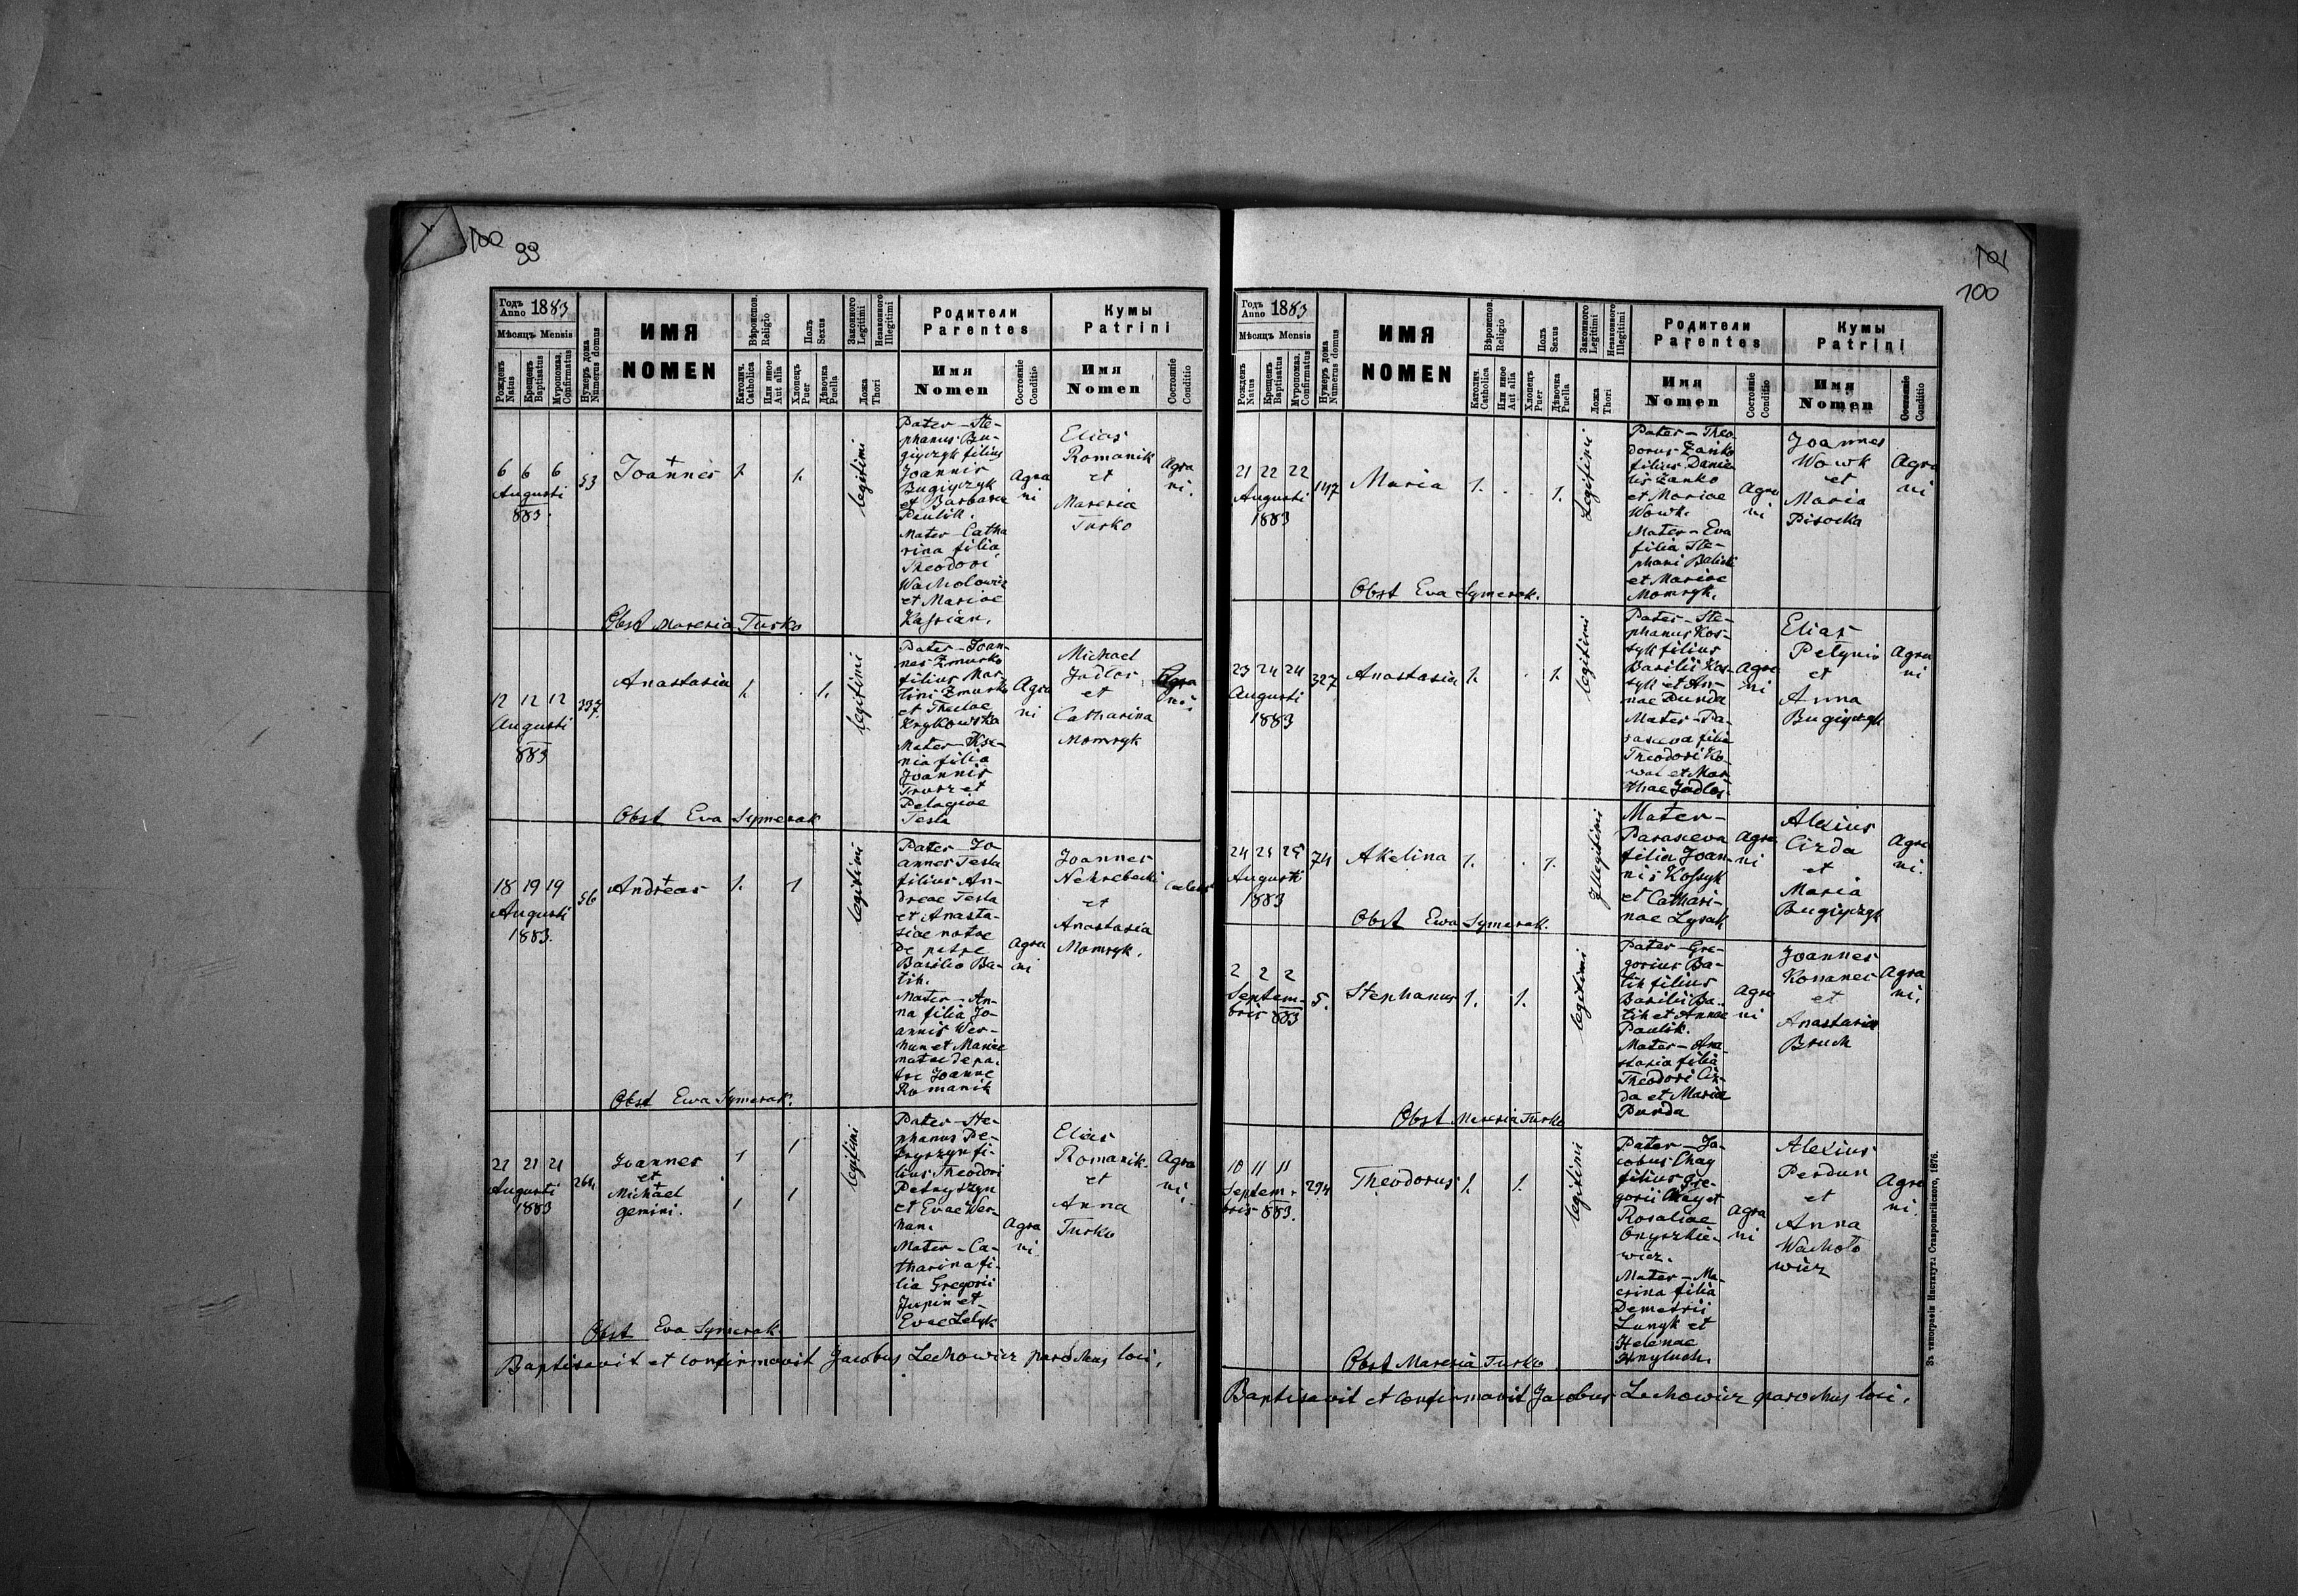 100
99
Годъ Anno 1883
Мѣсяцъ Mensis
Рожденъ Natus
Крещенъ Baptisatus
Муропомаз. Confirmatus
Нумеръ дома Numerus domus
ИМЯ
NOMEN
Вѣроиспов. Religio
Католич. Catholica
Или иное Aut alia
Полъ Sexus
Хлопецъ Puer
Дѣвочка Puella
Законного Legitimi
Незаконного Illegitimi
Ложа Thori
Родители
Parentes
Имя
Nomen
Состояніе Conditio
Кумы
Patrini
Имя
Nomen
Состояніе Conditio
6 6 6
Augusti
883.
53
Joannes
1.
1.
legitimi
Pater - Ste-
phanus Bu-
giyczyk filius
Joannis
Bugiyczyk
et Barbara
Paulik.
Mater Catha
rina filia
Theodori
Wacholowicz
et Mariae
Kassian.
Agra
ni
Elias
Romanik
et
Mareria
Turko
Agra
ni.
Obst Mareria Turko
12 12 12
Augusti
883
237.
Anastasia
1.
1.
legitimi
Pater - Joan-
nes Zmurko
filius Mar-
tini Zmurko
et Theclae
Krykowska
Mater - Kse-
nia filia
Joannis
Trusz et
Pelagiae
Tesla
Agra
ni
Michael
Jadlos
et
Catharina
Momryk
Agra
ni
Obst Eva Symerak
18 19 19
Augusti
1883.
56
Andreas
1.
1
legitimi
Pater - Jo-
annes Tesla
filius An-
dreae Tesla
et Anasta-
siae natae
de patre
Basilio Ba-
lih.
Mater - An-
na filia Jo-
annis Wer-
hun et Mariae
natae de pa-
tre Joanne
Romanik
Agra
ni
Joannes
Nehrebecki
et
Anastasia
Momryk.
Obst Ewa Symerak.
21 21 21
Augusti
1883
264
Joannes
et
Michael
gemini.
1
1
1
1
legitimi
Pater - Ste-
phanus Pe-
tryszyn fi-
lius Theodori
Petryszyn
et Evae Wer-
hun.
Mater - Ca-
tharina fi-
lia Gregorii
Jupin et
Evae Lelyk
Agra
ni
Elias
Romanik
et
Anna
Turko
Agra
ni.
Obst Eva Symerak
Baptisavit et confirmavit Jacobus Lechowicz parochus loci.
101
100
Годъ Anno 1883
Мѣсяцъ Mensis
Рожденъ Natus
Крещенъ Baptisatus
Муропомаз. Confirmatus
Нумеръ дома Numerus domus
ИМЯ
NOMEN
Вѣроиспов. Religio
Католич. Catholica
Или иное Aut alia
Полъ Sexus
Хлопецъ Puer
Дѣвочка Puella
Законного Legitimi
Незаконного Illegitimi
Ложа Thori
Родители
Parentes
Имя
Nomen
Состояніе Conditio
Кумы
Patrini
Имя
Nomen
Состояніе Conditio
21 22 22
Augusti
1883
147
Maria
1.
1.
Legitimi
Pater - Theo-
dorus Zanko
filius Danie-
lis Zanko
et Mariae
Wowk.
Mater - Eva
filia Ste-
phani Balicki
et Mariae
Momryk.
Agra
ni
Joannes
Wowk
et
Maria
Pisocka
Agra
ni
Obst Eva Symerak.
23 24 24
Augusti
1883
327
Anastasia
1.
1.
legitimi
Pater - Ste-
phanus Kos-
syk filius
Basilii Kos-
syk et An-
nae Durda
Mater - Pa-
rasceva filia
Theodori Ko-
wal et Mar-
thae Jadlos.
Agra
ni
Elias
Petynio
et
Anna
Bugiyczyk
Agra
ni
24 25 25
Augusti
1883
74
Akelina
1.
1.
Illegitimi
Mater -
Parasceva
filia Joan-
nis Kossyk
et Cathari-
nae Lysak
Agra
ni
Alexius
Cizda
et
Maria
Bugiyczyk
Agra
ni.
Obst Ewa Symerak.
2 2 2
Septem-
bris 883
5.
Stephanus
1.
1.
legitimi
Pater - Gre-
gorius Ba-
lih filius
Basilii Ba-
lih et Annae
Paulik.
Mater - Ana-
stasia filia
Theodori Ciz-
da et Maria
Durda
Agra
ni
Joannes
Konanec
et
Anastasia
Bruch
Agra
ni.
Obst Mareria Turko
10 11 11
Septem-
bris 883.
294
Theodorus
1.
1.
legitimi
Pater - Ja-
cobus Chay
filius Gre-
gorii Chay et
Rosaliae
Onyszkie-
wicz.
Mater - Ma-
crina filia
Demetrii
Lunyk et
Helenae
Hnyluch.
Agra
ni
Alexius
Perdun
et
Anna
Wacholo
wicz
Agra
ni.
Obst Mareria Turko
Baptisavit et confirmavit Jacobus Lechowicz parochus loci.
Зъ типографіи Института Ставропигійского, 1876.